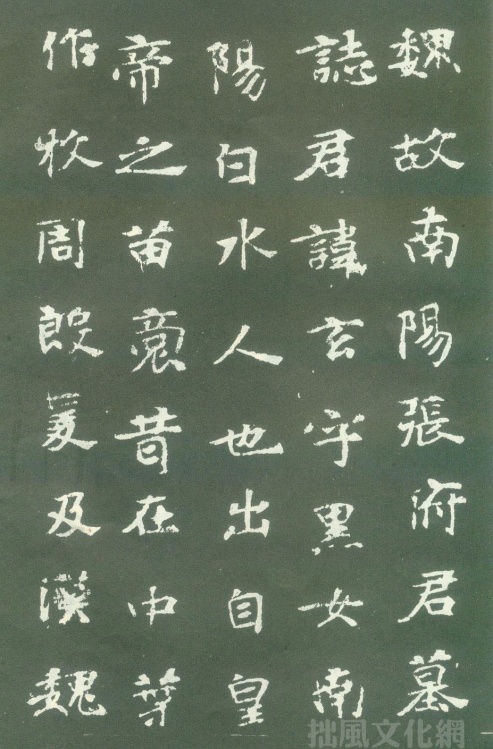 魏故南陽張府君墓
誌君諱玄字黑女南
陽白水人也出自皇
帝之苗裔昔在中葉
作牧周殷爰及漢魏
拙風文化網